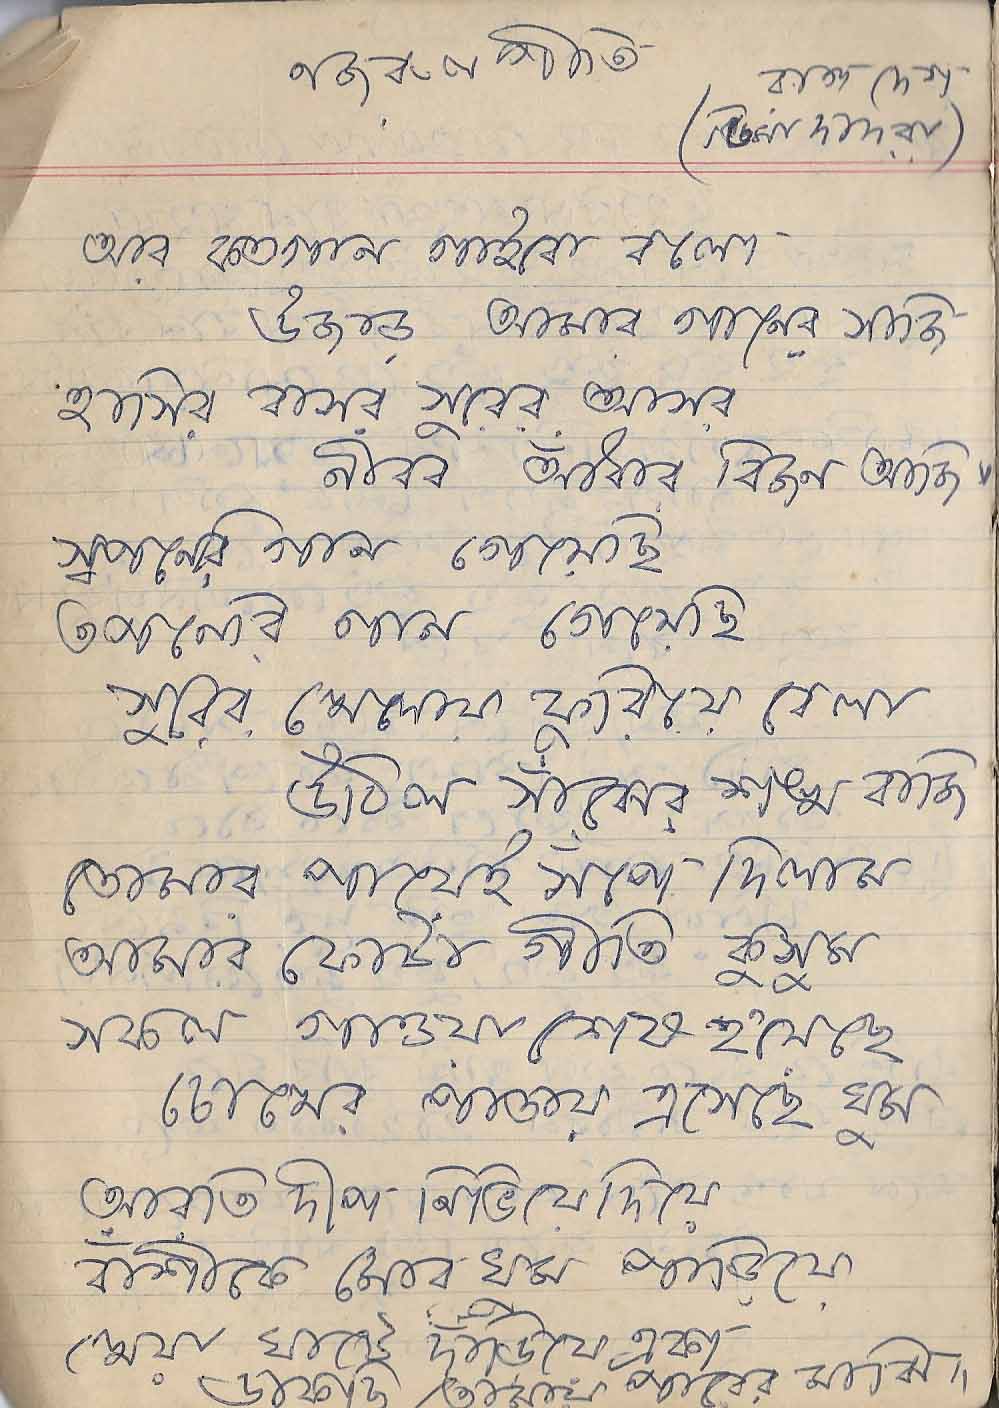 নজরুল গীতি
রাগ দেশ
( দাদরা)
আর কতগান গাইবো বলো
উজাড় আমার গানের সাজি
হাসির বাসর সুরের আসর
নীরব আঁধার বিজন আজি॥
স্বপনেরি গান গেয়েছি
তপনেরি গান গেয়েছি
সুরের খেলায় ফুরিয়ে বেলা
উঠিল সাঁঝের শঙ্খ বাজি
তোমার পায়েই সঁপে দিলাম
আমার ফোটা গীতি কুসুম
সকল গাওয়া শেষ হয়েছে
চোখের পাতায় এসেছে ঘুম
আরতি দীপ নিভিয়ে দিয়ে
বাঁশীকে মোর ঘুম পাড়িয়ে
খেয়া ঘাটে দাঁড়িয়ে একা
ডাকছি তোমায় পারের মাঝি॥